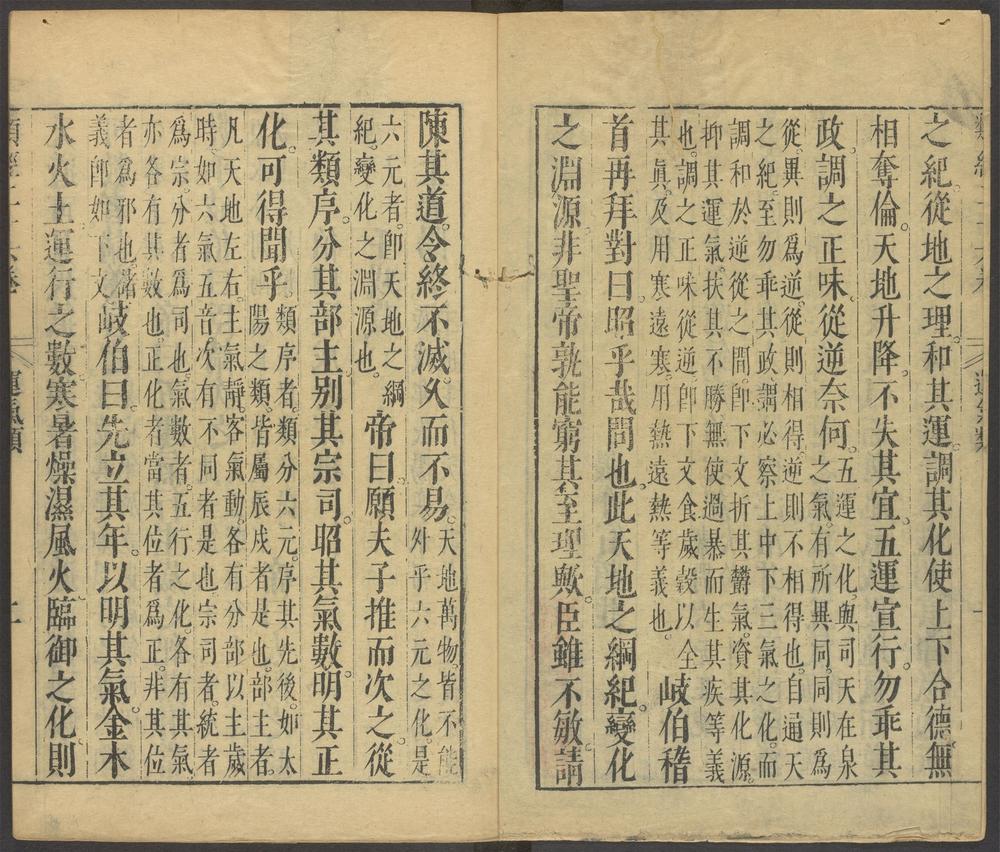 之紀從地之理和其運調其化使上下合德無
相奪倫天地升降不失其宜五運宣行勿乖其
政調之正味從逆奈何
五運之化與司天在泉
之氣有所異同同則爲
從異則爲逆從則相得逆則不相得也自通天
之紀至勿乖其政謂必察上中下三氣之化而
調和於逆從之間即下文折其鬱氣資其化源
抑其運氣扶其不勝無使過暴而生其疾等義
也調之正味從逆即下文食歲穀以全
其眞及用寒遠寒用熱遠熱等義也
岐伯稽
首再拜對曰昭乎哉問也此天地之綱紀變化
之淵源非聖帝孰能窮其至理歟臣雖不敏請
運氣類
陳其道令終不滅久而不易
天地萬物皆不能
外乎六元之化是
六元者即天地之綱
紀變化之淵源也
帝曰願夫子推而次之從
其類序分其部主别其宗司昭其氣數明其正
化可得聞乎
類序者類分六元序其先後如太
陽之類皆屬辰戌者是也部主者
凡天地左右主氣靜客氣動各有分部以主歲
時如六氣五音次有不同者是也宗司者統者
爲宗分者爲司也氣數者五行之化各有其氣
亦各有其數也正化者當其位者爲正非其位
者爲邪也諸
義即如下文
岐伯曰先立其年以明其氣金木
水火土運行之數寒暑燥濕風火臨御之化則
運氣類